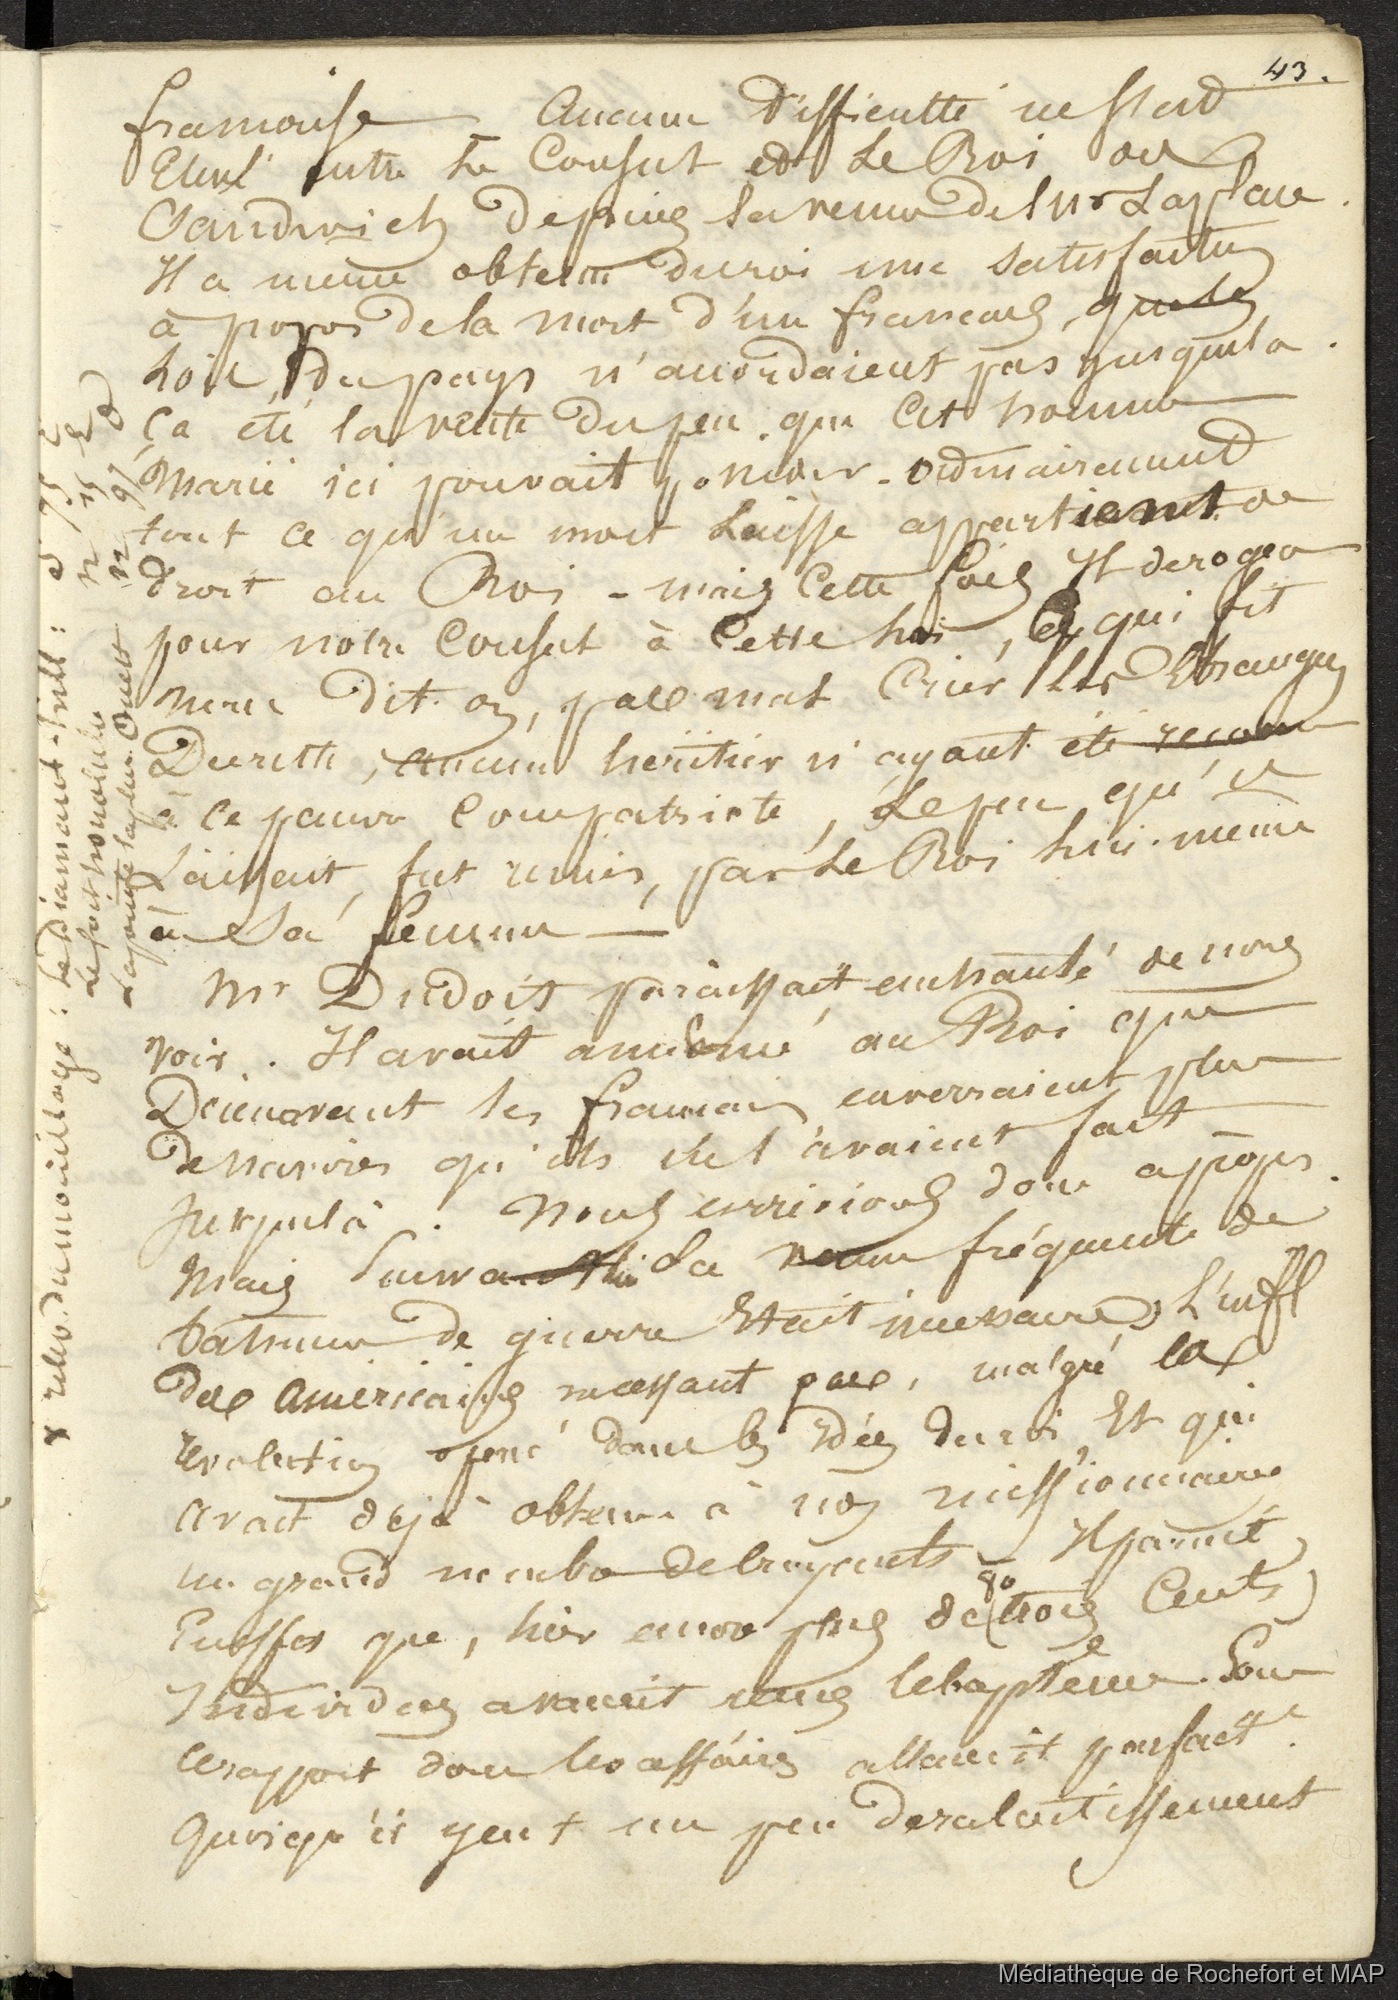 43.
française — Aucune difficulté ne s'était
Elevé entre le Consul et Le Roi de
Sandwich depuis la venue de Mr Laplace.
Il a même obtenu du roi une satisfaction
à propos de la mort d'un français, que les
Lois du pays n'accordaient pas jusque la.
ça été la vente du peu que Cet homme
Marié ici pouvait posseder. ordinairement
tout ce qu'un mort Laisse appartient de
droit au Roi - mais Cette fois Il derogea
pour notre Consul à Cette loi, Ce qui fit
même dit on, pas mal Crier Les Etrangers
Du reste, aucun héritier n'ayant été reconnu
à ce pauvre Compatriote, Le peu qu'il
Laissait, fut remis, par Le Roi lui-même
à Sa femme —
Mr Dudoit paraissait enchanté de nous
voir. Il avait annoncé au Roi que
Dorenavant les français enverraient plus
de navires qu'ils ne l'avaient fait
jusque là. Nous arrivions donc apropos.
Mais Suivant lui La venue fréquente de
batimens de guerre Etait nécessaire, L'infl
des américains ne cessant pas, malgré la
revolution opéré dans les idées du roi, Et qui
avait déjà obtenu à nos missionnaires
un grand nombre de croyants - Il parait
En effet que, hier encore plus de (trois Cents)
80
Individus avaient reçus le baptême. Sous
ce rapport donc les affaires allaient parfaitt.
Quoiqu'il y eut un peu de ralentissement
x relev. du mouillage: Le Diamant-hill: S 75 E
Le fort honolulu N 75 E
La pointe la plus Ouest N 91 O